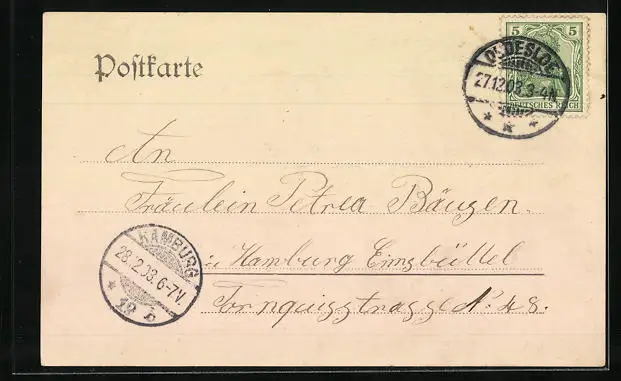 Postkarte
5 5
OLDESLOE
27.12.03.3-4N.
DEUTSCHES REICH
An
Fräulein Petrea Bäuzen.
in Hamburg Eimsbüttel
HAMBURG
28.12.03.6-7V.
* 19 c
Tornquisstrasse No 48.